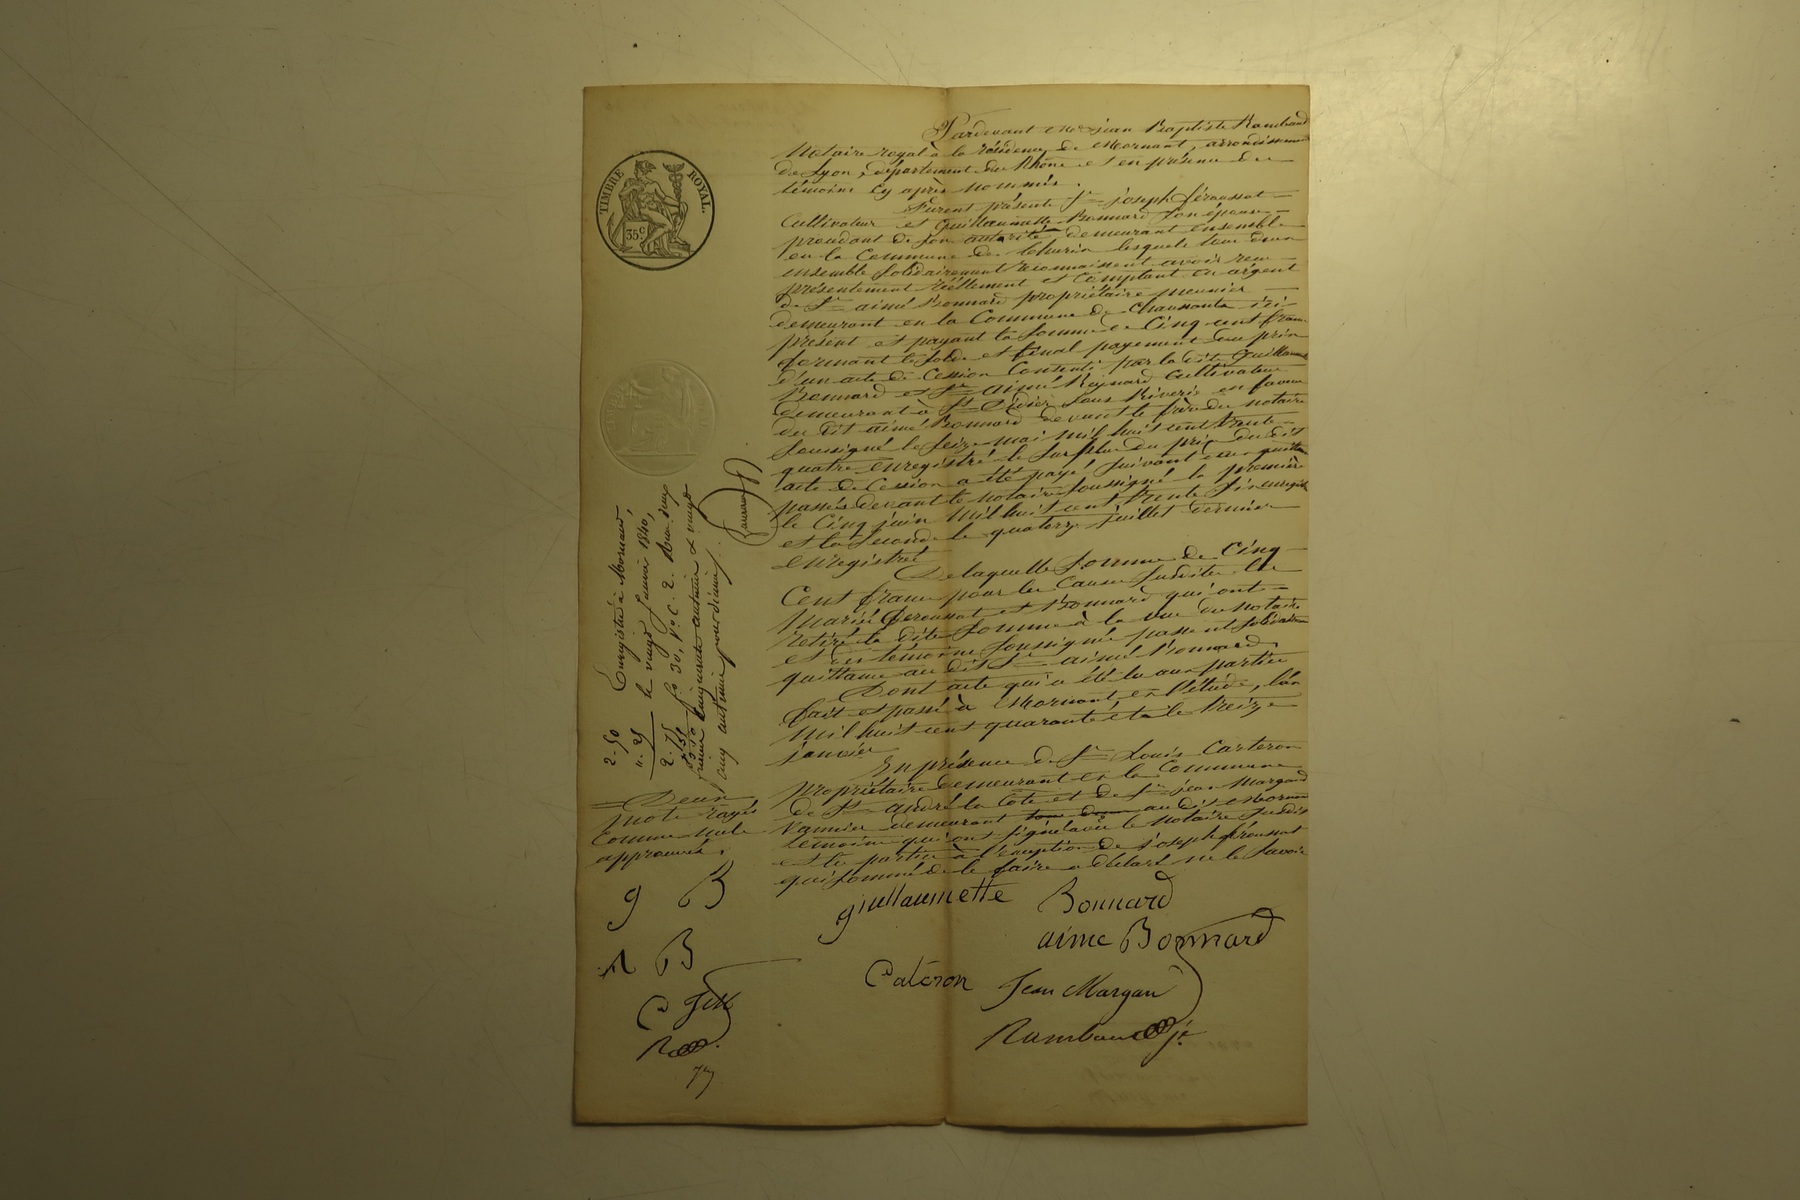 TIMBRE ROYAL.
35 c.
Pardevant Me jean Baptiste Rambaud
Notaire royal à la résidence de Mornant, arrondissement
de Lyon, département du Rhône et en présence des
témoins cy après nommés.
Furent présents Sr joseph féroussat
Cultivateur et Guillaumette Bonnard son épouse
procédant de son autorité demeurant ensemble
en la Commune de lesquels tous deux
ensemble solidairement reconnaissent avoir reçu
présentement réellement et Comptant en argent
de Sr aimé Bonnard propriétaire meunier
demeurant en la Commune de Chaussonts ici
présent et payant la somme de Cinq cent francs
formant le solde et final payement du prix
d'un acte de Cession Consenti par la dite Guillaumette
Bonnard et Sr aimé Reynard Cultivateur
demeurant à St Didier sous Riverie en faveur
du dit aimé Bonnard devant le père du notaire
soussigné le seize mai mil huit cent trente
quatre enregistré le surplus du prix du dit
acte de Cession a été payé suivant deux quittances
passées devant le notaire soussigné la première
le Cinq juin mil huit cent trente six enregistrée
et la seconde le quatorze juillet dernier
enregistrée
De laquelle somme de Cinq
Cent francs pour les Causes susdites les
mariés ferroussat et Bonnard qui ont
retiré la dite somme à la vue du notaire
et des témoins soussignés passent solidaire
quittance au dit Sr aimé Bonnard.
Dont acte qui a été lu aux parties
fait et passé à Mornant, en l'étude, l'an
mil huit cent quarante, et le treize
janvier
En présence de Sr Louis Carteron
propriétaire demeurant en la Commune
de St andré la Cote et de Sr jean Margand
Vannier demeurant tous deux au dit Mornant
témoins qui ont signé avec le notaire susdit
et les parties à l'exception de joseph féroussat
qui sommé de le faire a déclaré ne le savoir
guillaumette Bonnard
aime Bonnard
Catéron Jean Margan
Rambaud
Enregistré à Mornant,
le vingt Janvier 1840,
fo 30, Vo C. 2. Reçu deux
francs cinquante centimes & vingt
cinq centimes pour décime.
2-50
"-25
2-75
Deux
mots rayés
comme nuls
approuvés.
g B
a B
C JM
R